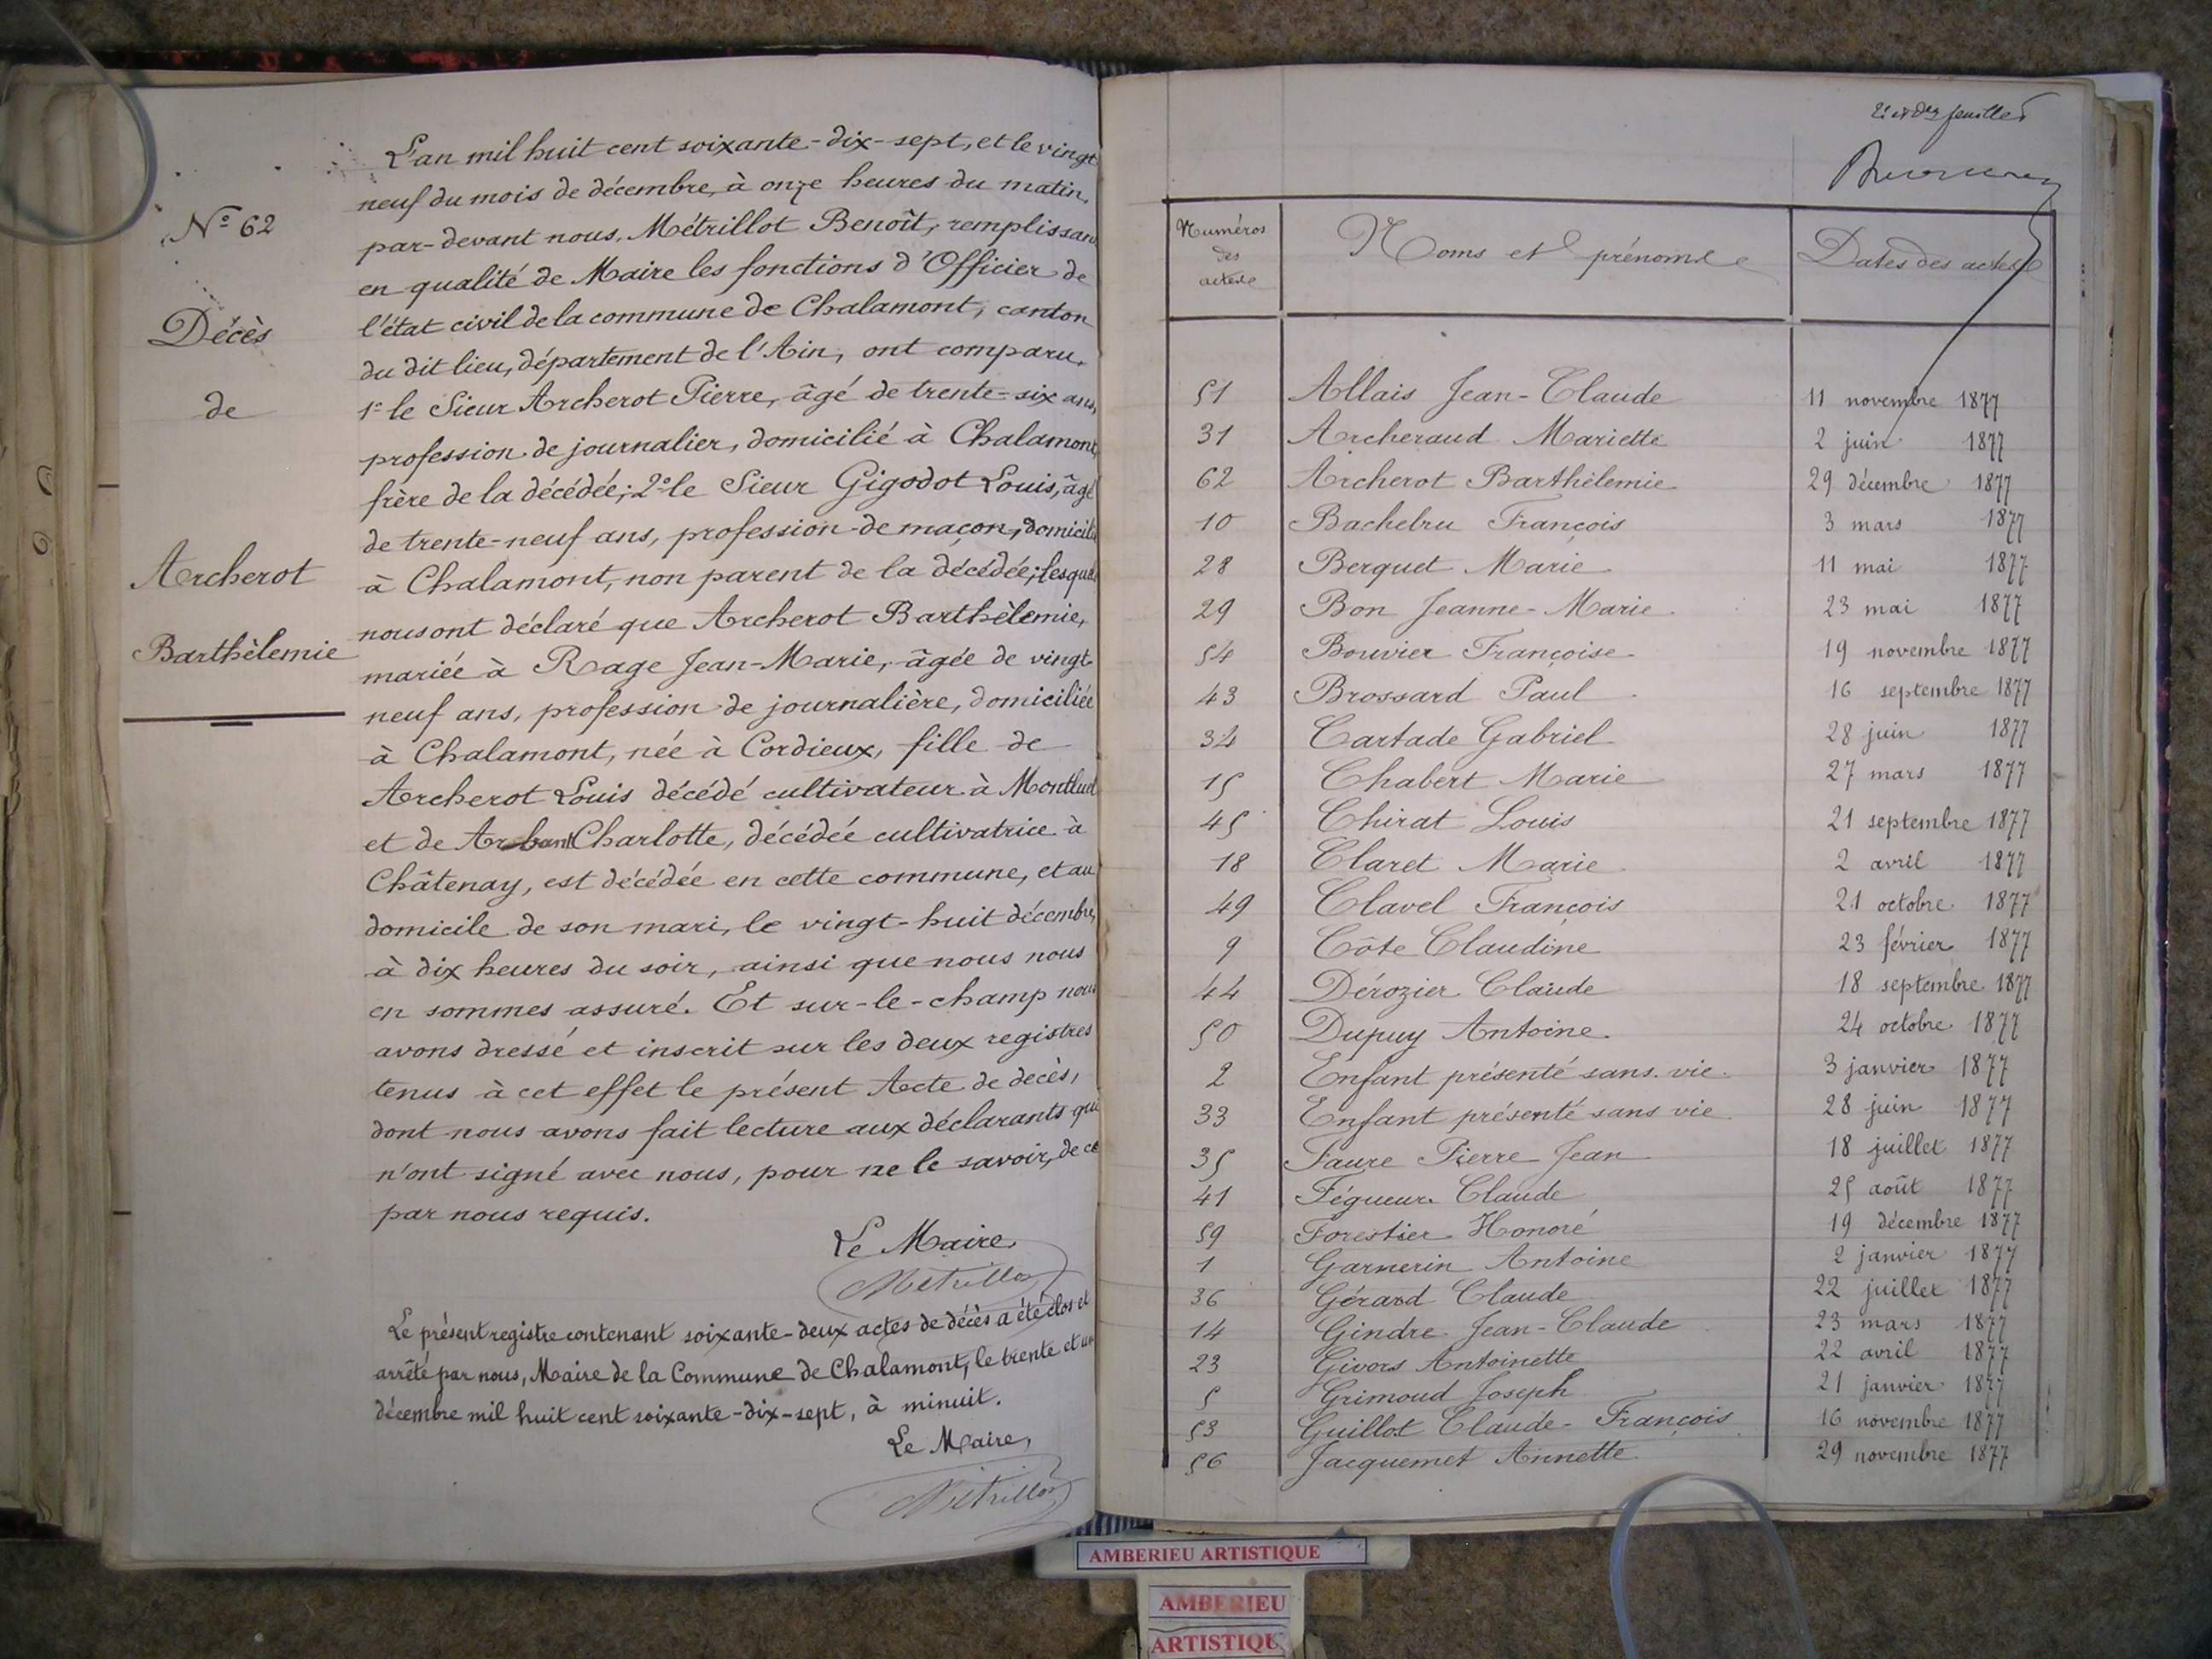 N° 62
Décès
de
Archerot
Barthèlemie
L'an mil huit cent soixante-dix-sept, et le vingt
neuf du mois de décembre, à onze heures du matin,
par-devant nous, Métrillot Benoît, remplissan
en qualité de Maire les fonctions d'Officier de
l'état civil de la commune de Chalamont, canton
du dit lieu, département de l'Ain, ont comparu,
1° le Sieur Archerot Pierre, âgé de trente-six ans,
profession de journalier, domicilié à Chalamont,
frère de la décédée; 2° le Sieur Gigodot Louis, âgé
de trente-neuf ans, profession de maçon, domicili
à Chalamont, non parent de la décédée; lesquel
nous ont déclaré que Archerot Barthèlemie,
mariée à Rage Jean-Marie, âgée de vingt-
neuf ans, profession de journalière, domiciliée
à Chalamont, née à Cordieux, fille de
Archerot Louis décédé cultivateur à Montluel
et de Charlotte, décédée cultivatrice à
Châtenay, est décédée en cette commune, et au
domicile de son mari, le vingt-huit décembre,
à dix heures du soir, ainsi que nous nous
en sommes assuré. Et sur-le-champ nous
avons dressé et inscrit sur les deux registres
tenus à cet effet le présent Acte de decès,
dont nous avons fait lecture aux déclarants qui
n'ont signé avec nous, pour ne le savoir, de ce
par nous requis.
Le Maire,
Métrillot
Le présent registre contenant soixante-deux actes de décès a été clos et
arrêté par nous, Maire de la Commune de Chalamont, le trente et un
décembre mil huit cent soixante-dix-sept, à minuit.
Le Maire,
Métrillot
feuillet
Numéros des actes Noms et prénoms Dates des actes
51 Allais Jean-Claude 11 novembre 1877
31 Archeraud Mariette 2 juin 1877
62 Archerot Barthèlemie 29 décembre 1877
10 Bachelru François 3 mars 1877
28 Berquet Marie 11 mai 1877
29 Bon Jeanne-Marie 23 mai 1877
54 Bouvier Françoise 19 novembre 1877
43 Brossard Paul 16 septembre 1877
34 Cartade Gabriel 28 juin 1877
15 Chabert Marie 27 mars 1877
45 Chirat Louis 21 septembre 1877
18 Claret Marie 2 avril 1877
49 Clavel François 21 octobre 1877
9 Côte Claudine 23 février 1877
44 Dérozier Claude 18 septembre 1877
50 Dupuy Antoine 24 octobre 1877
2 Enfant présenté sans vie 3 janvier 1877
33 Enfant présenté sans vie 28 juin 1877
35 Faure Pierre Jean 18 juillet 1877
41 Fégueur Claude 25 août 1877
59 Forestier Honoré 19 décembre 1877
1 Garnerin Antoine 2 janvier 1877
36 Gérard Claude 22 juillet 1877
14 Gindre Jean-Claude 23 mars 1877
23 Givors Antoinette 22 avril 1877
5 Grimoud Joseph 21 janvier 1877
53 Guillot Claude-François 16 novembre 1877
56 Jacquemet Annette 29 novembre 1877
AMBERIEU ARTISTIQUE
AMBERIEU
ARTISTIQU